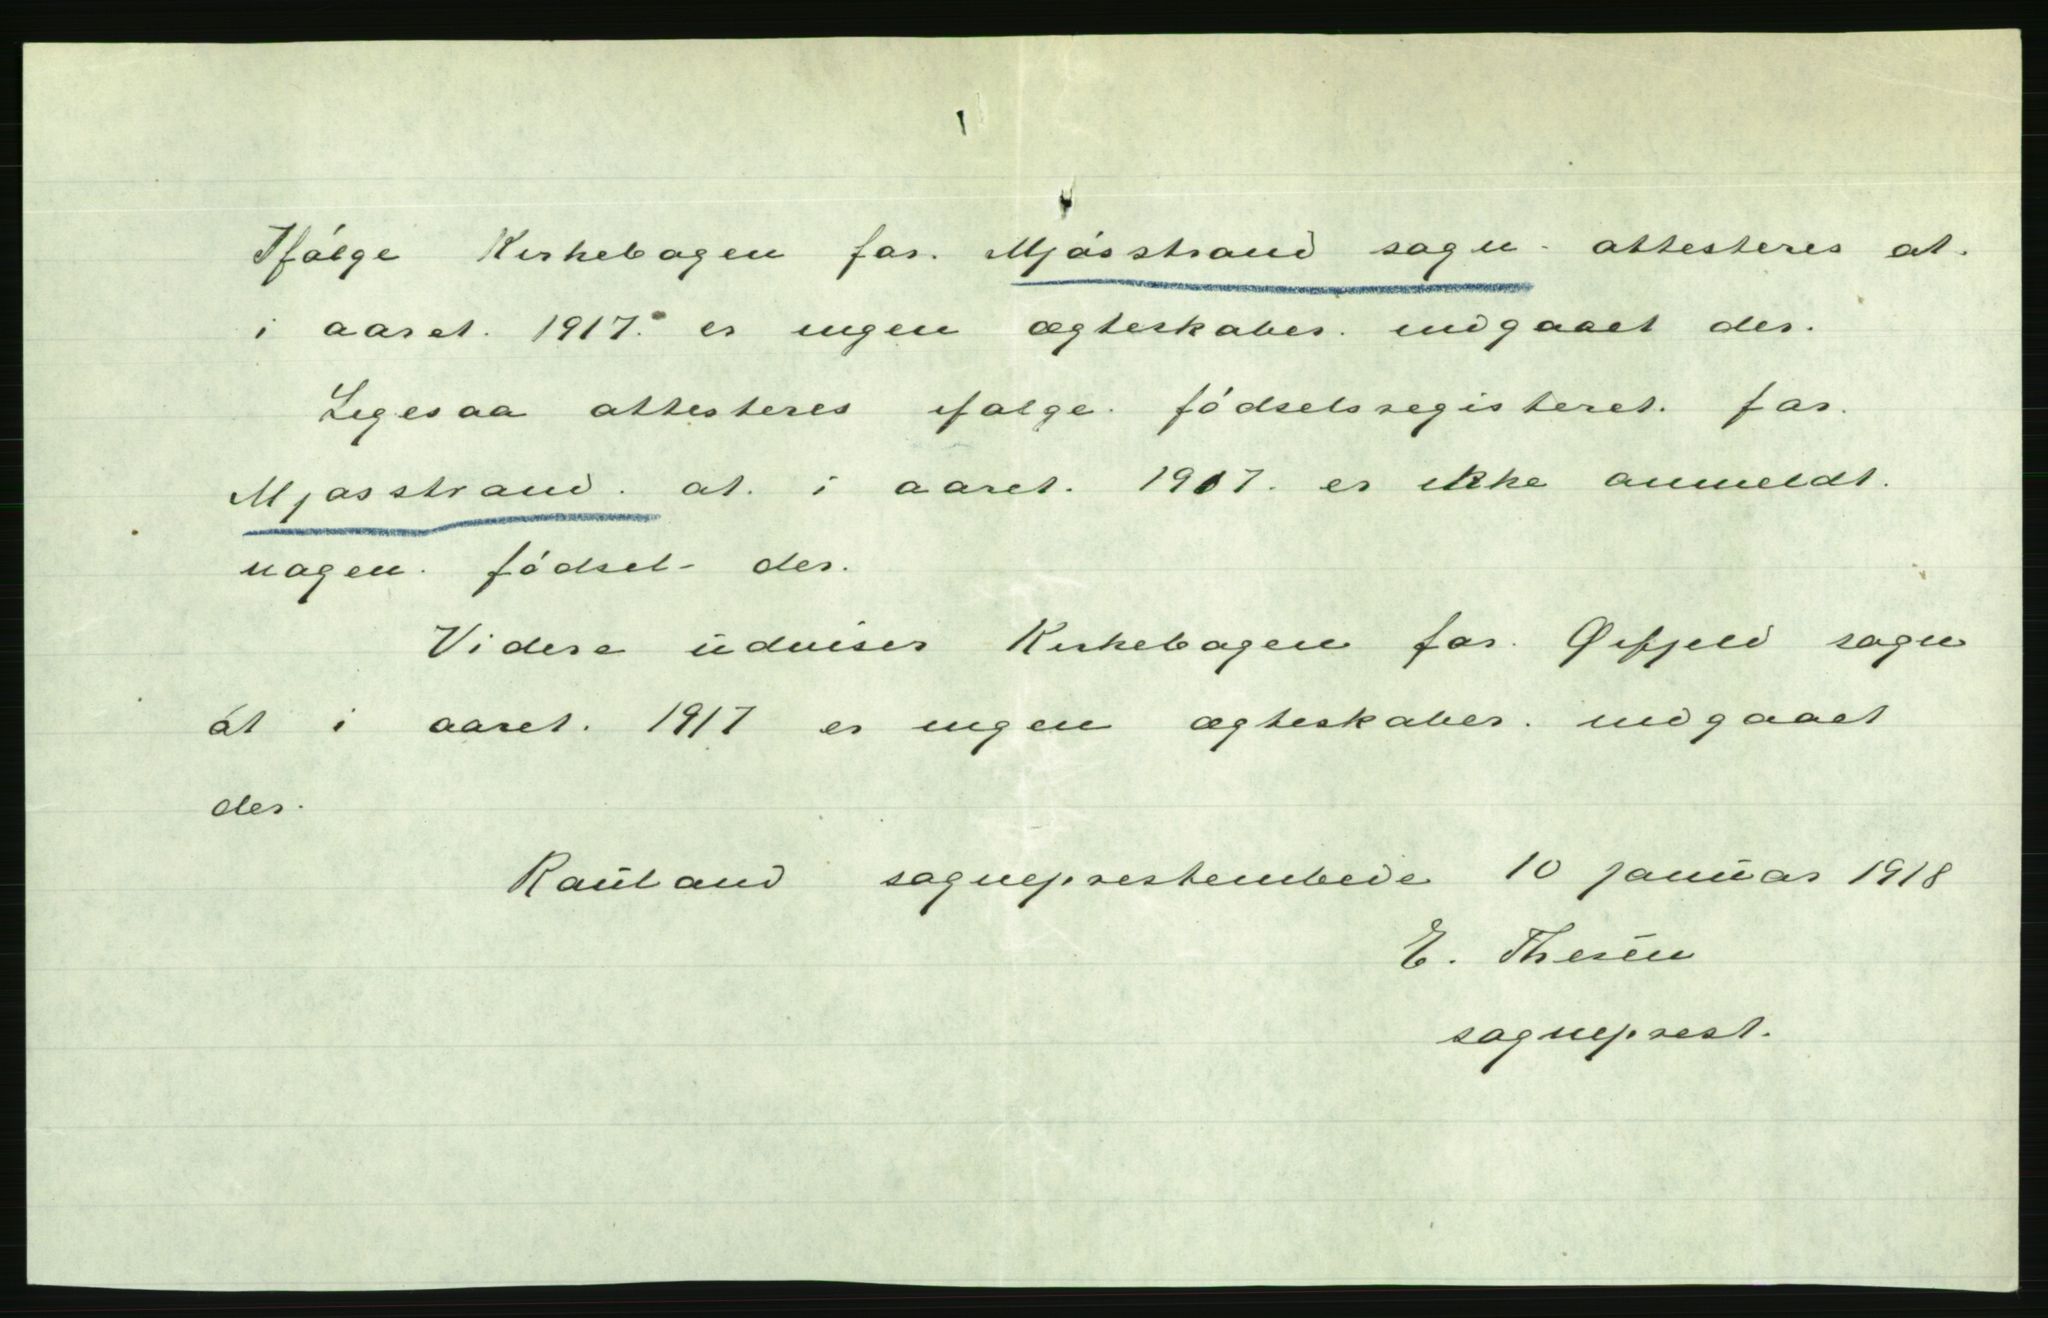 Ifólge Kirkebogen for. Mjósstrand sogn attesteres at.
i aaret. 1917. er ingen ægteskaber. indgaaet der.
Ligesaa attesteres ifølge. fódselsregisteret. for.
Mjosstrand. at. i aaret. 1917. er ikke anmeldt.
nogen. fódsel - der.
Videre udviser Kirkebogen for. Øifjeld sogn
at i aaret. 1917 er ingen ægteskaber. indgaaet
der.
Rauland sogneprestembede 10 januar 1918
E. Thesén
sogneprest.